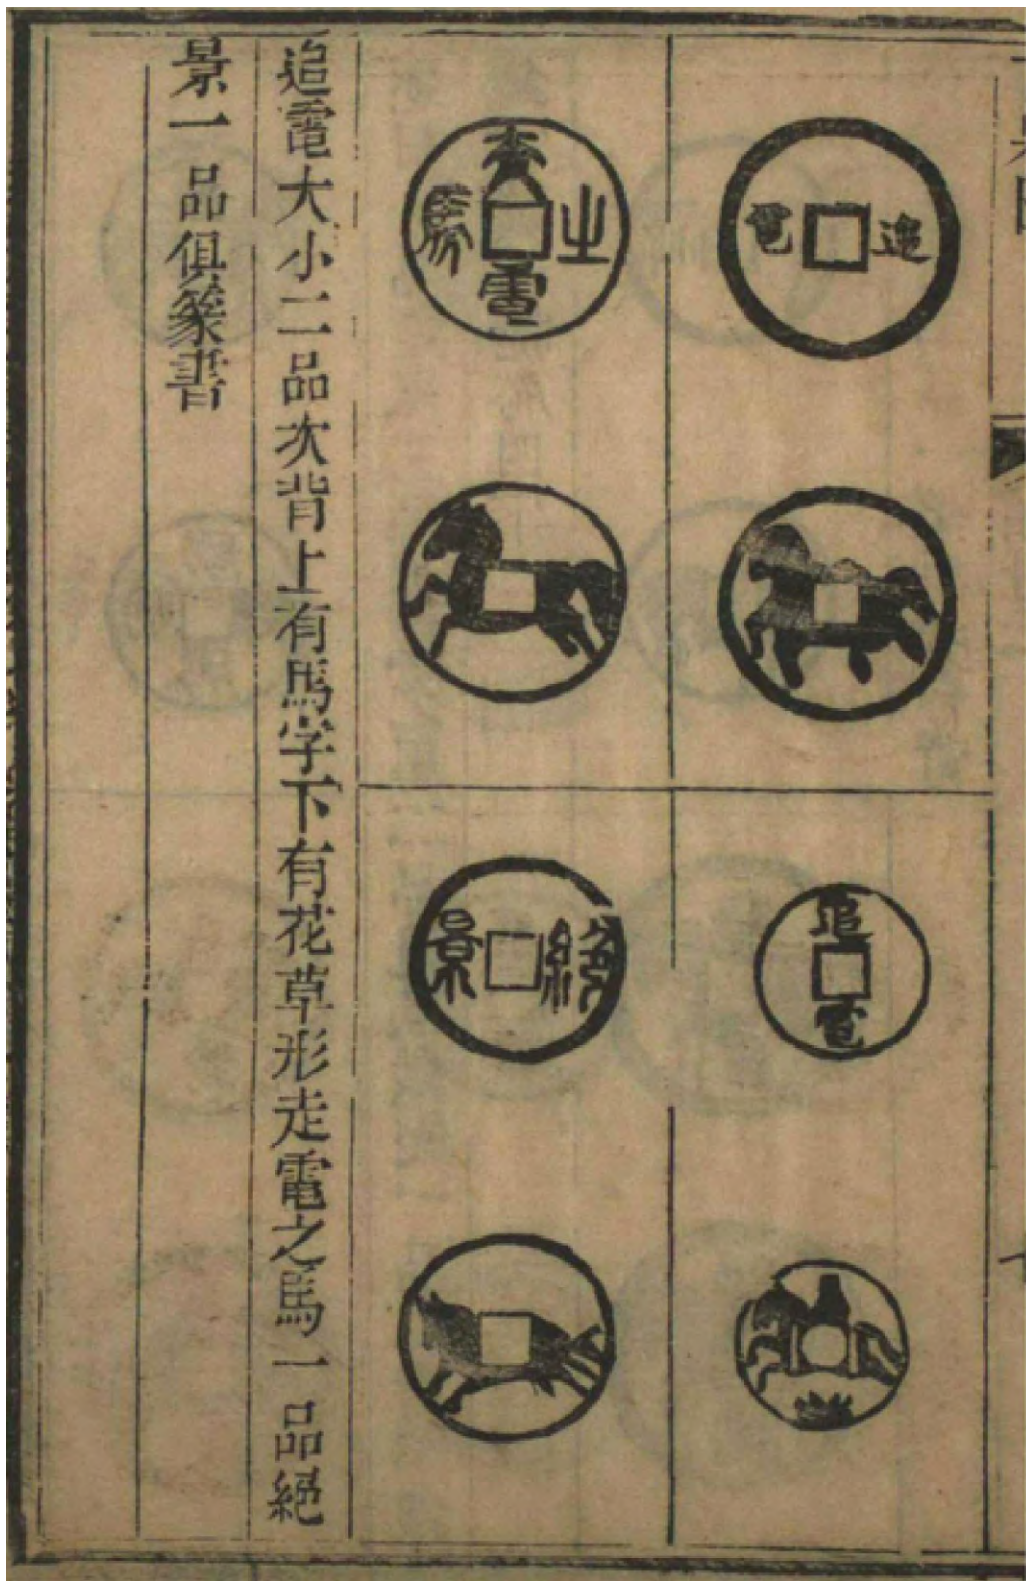 追電
追電
走電之馬
絕景
追電大小二品次背上有馬字下有花草形走電之馬一品絕
景一品俱篆書